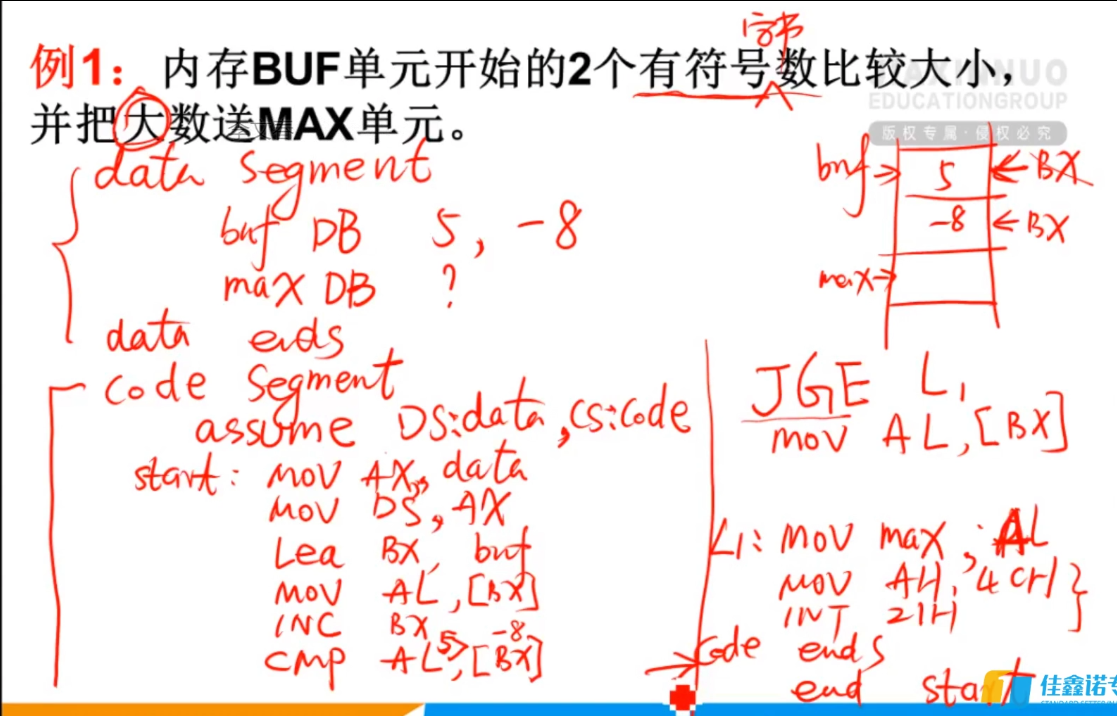 字节
例1：内存BUF单元开始的2个有符号数比较大小，
并把大数送MAX单元。
EDUCATIONGROUP
版权专属·侵权必究
data segment
buf DB 5, -8
max DB ?
data ends
code segment
assume DS:data,CS:code
start: MOV AX, data
MOV DS, AX
Lea BX, buf
MOV AL,[BX]
INC BX
5 -8
CMP AL,[BX]
buf→ 5 ←BX
-8 ←BX
max→
JGE L1
mov AL,[BX]
L1: MOV max, AL
MOV AH, 4CH
INT 21H
Code ends
end start
佳鑫诺专